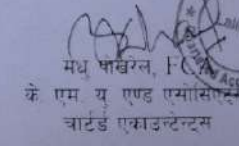 मधु पोखरेल, FCA
के. एम. यु. एण्ड एसोसिएट्स
चार्टर्ड एकाउन्टेन्ट्स